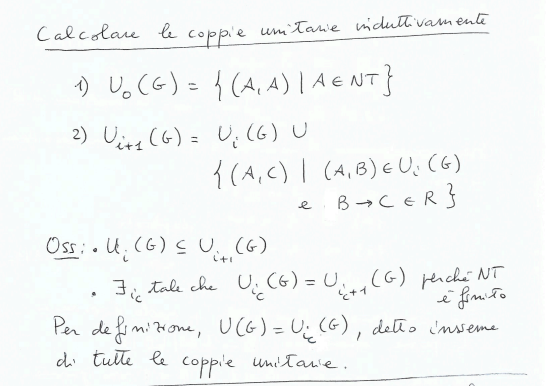 Calcolare le coppie unitarie induttivamente
1) U₀(G) = { (A,A) | A ∈ NT }
2) Uᵢ₊₁(G) = Uᵢ(G) ∪
{ (A,C) | (A,B) ∈ Uᵢ(G)
e B → C ∈ R }
Oss: . Uᵢ(G) ⊆ Uᵢ₊₁(G)
. ∃ i_c tale che U_{i_c}(G) = U_{i_c+1}(G) perché NT
è finito
Per definizione, U(G) = U_{i_c}(G), detto insieme
di tutte le coppie unitarie.